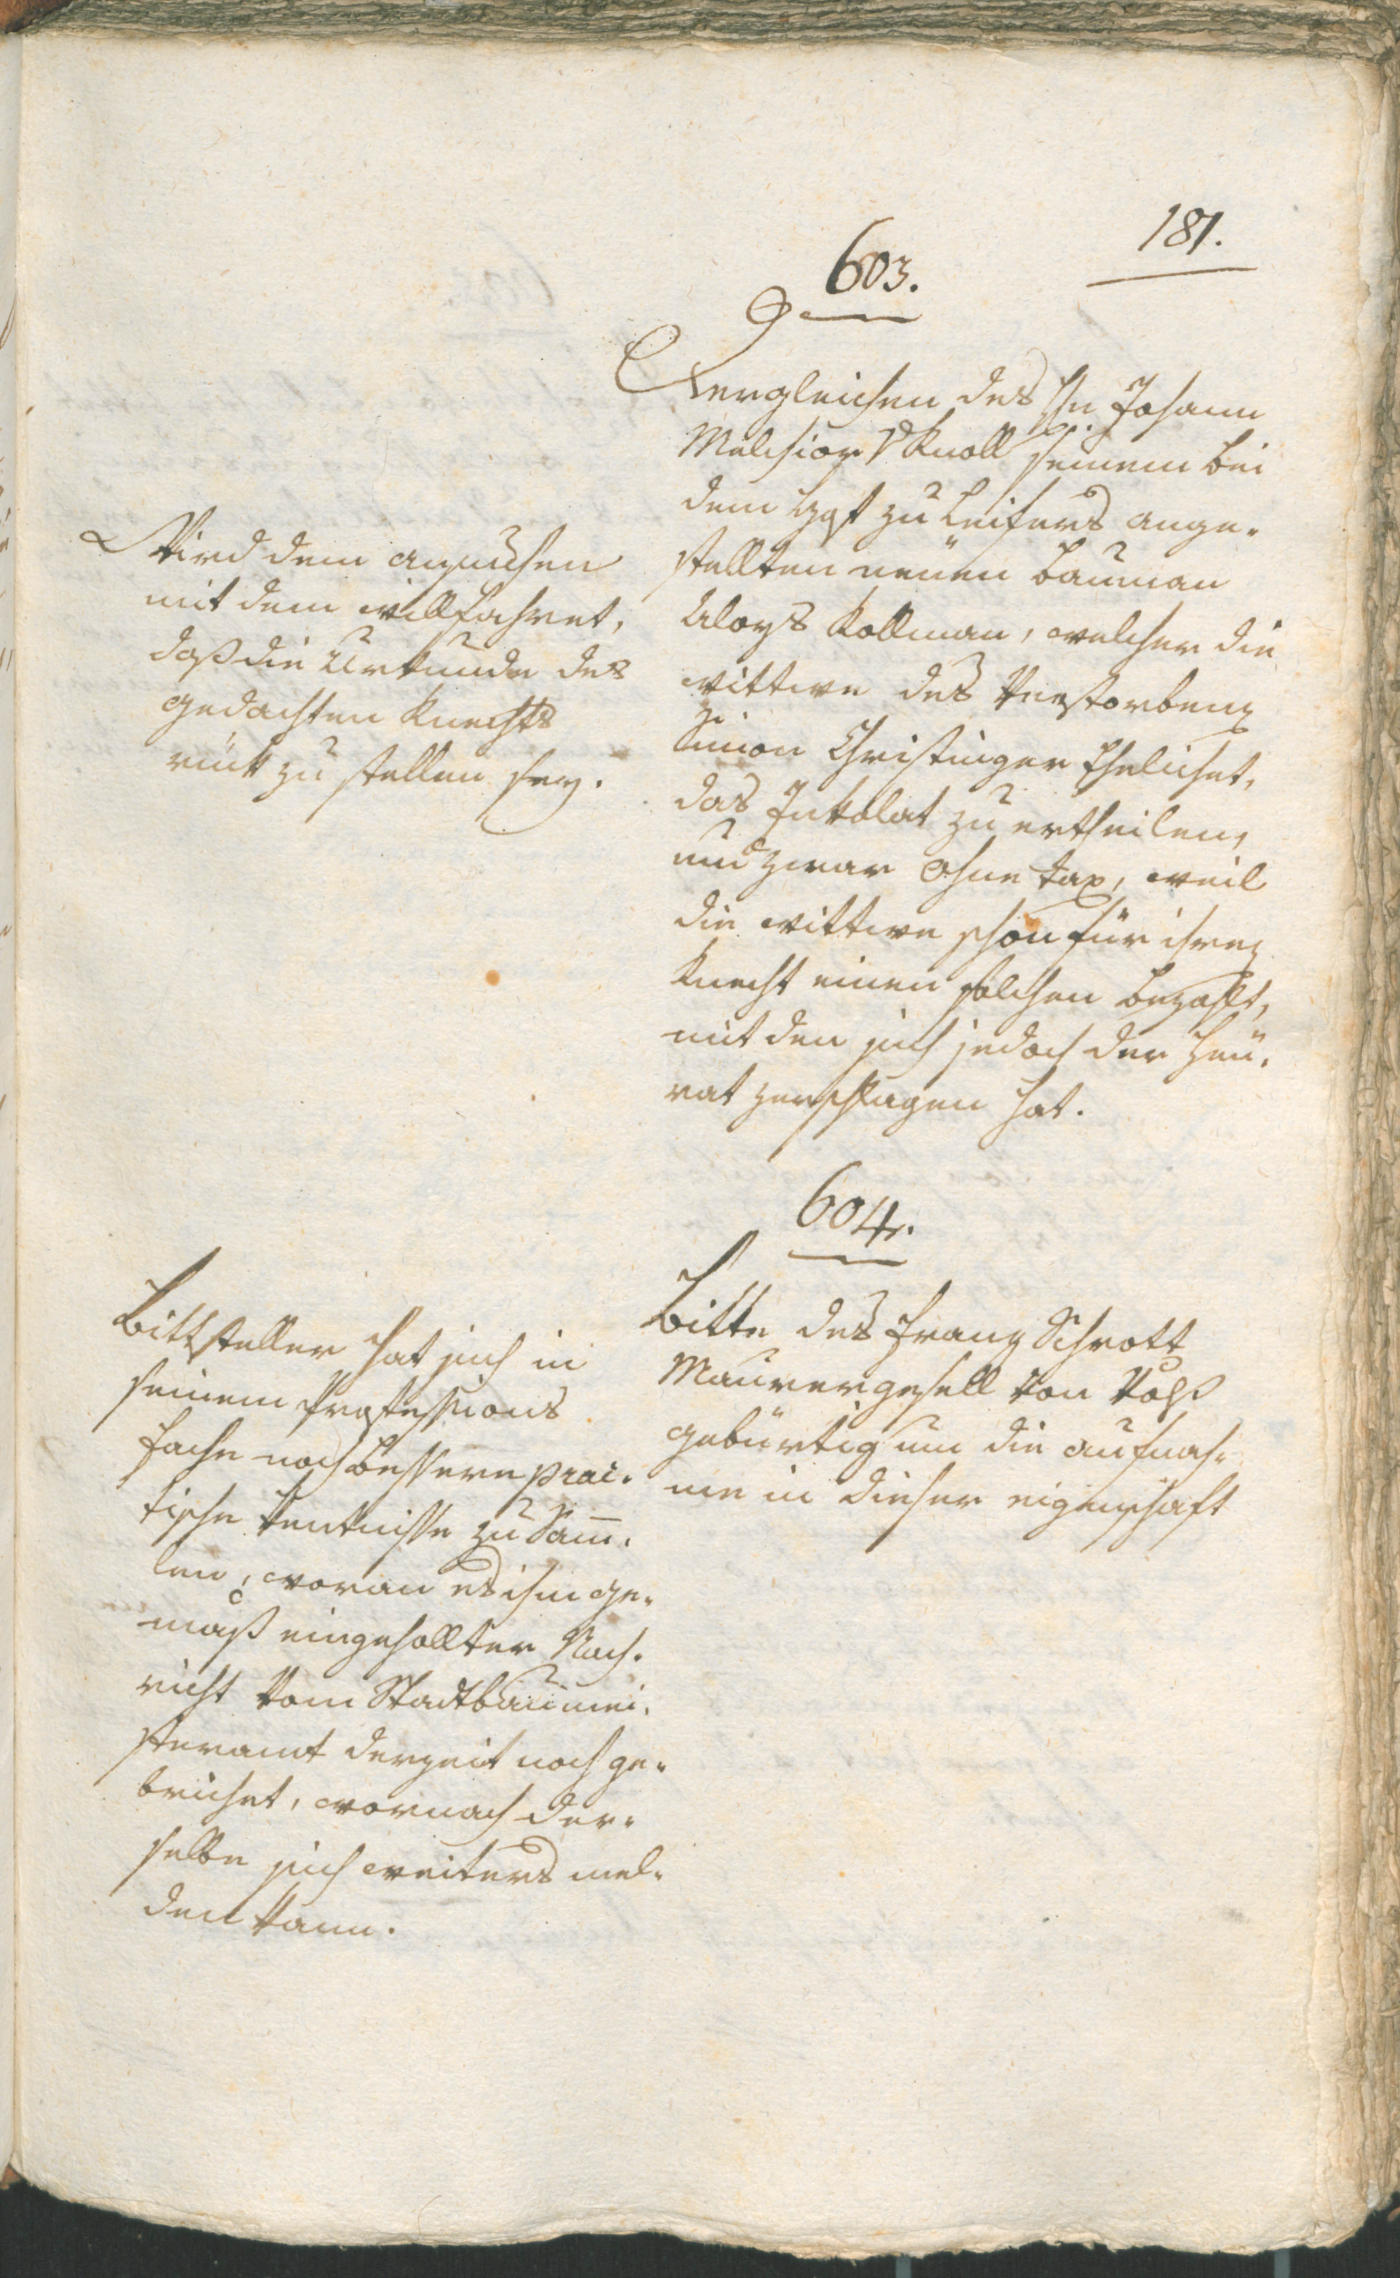 181.
603.
Dergleichen des Hn Johann
Melchior v Knoll seinem bei
dem zu Leifers ange-
stellten neuen Bauman
Aloys Kollman, welcher die
Wittwe des Verstorbenen
Simon Christinger Ehelichet,
das Inkolat zu ertheilen,
und zwar Ohne tax, weil
die Wittwe schon für ihren
Knecht einen solchen bezahlt,
mit den sich jedoch der Heü-
rat zerschlagen hat.
Wird dem Ansuchen
mit dem willfahret,
daß die Urkunde des
gedachten Knechts
rück zu stellen sey.
604.
Bitte des Franz Schrott
Maurergesell von
gebürtig um die Aufnah-
me in dieser eigenschaft
Bittsteller hat sich in
seinem Professions
fache noch bessere prac-
tische Kentnisse zu Sam̅-
len, woran es ihm ge-
mäß eingehollter Nach-
richt vom Stadtbaumei-
steramt derzeit noch ge-
brichet, wornach der-
selbe sich weiters mel-
den kann.